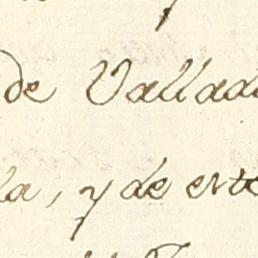 de Vallad
la, y de este